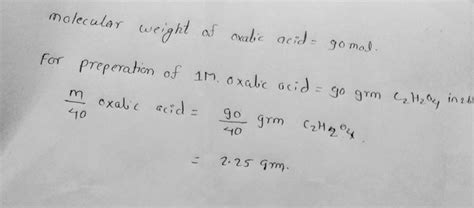 molecular weight of oxalic acid = 90 mol.
For preperation of 1M. oxalic acid = 90 grm C₂H₂O₄ in
m/40 oxalic acid = 90/40 grm C₂H₂O₄.
= 2.25 grm.